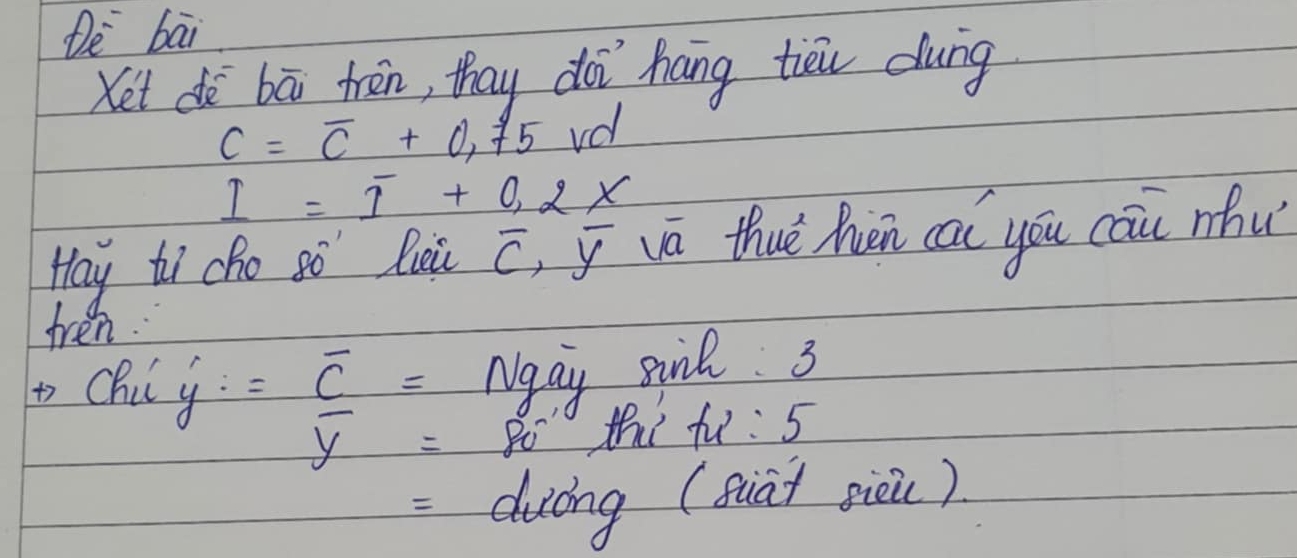 Đề bài
Xét đề bài trên, thay đổi hàng tiêu dùng.
C = C̄ + 0,75 Yd
I = Ī + 0,2 Y
Hãy tự cho số liệu C̄, Ȳ và thực hiện các yêu cầu như
trên.
+> Chú ý: = C̄ = Ngày sinh : 3
Ȳ = số thứ tự : 5
= dương (suất siêu).